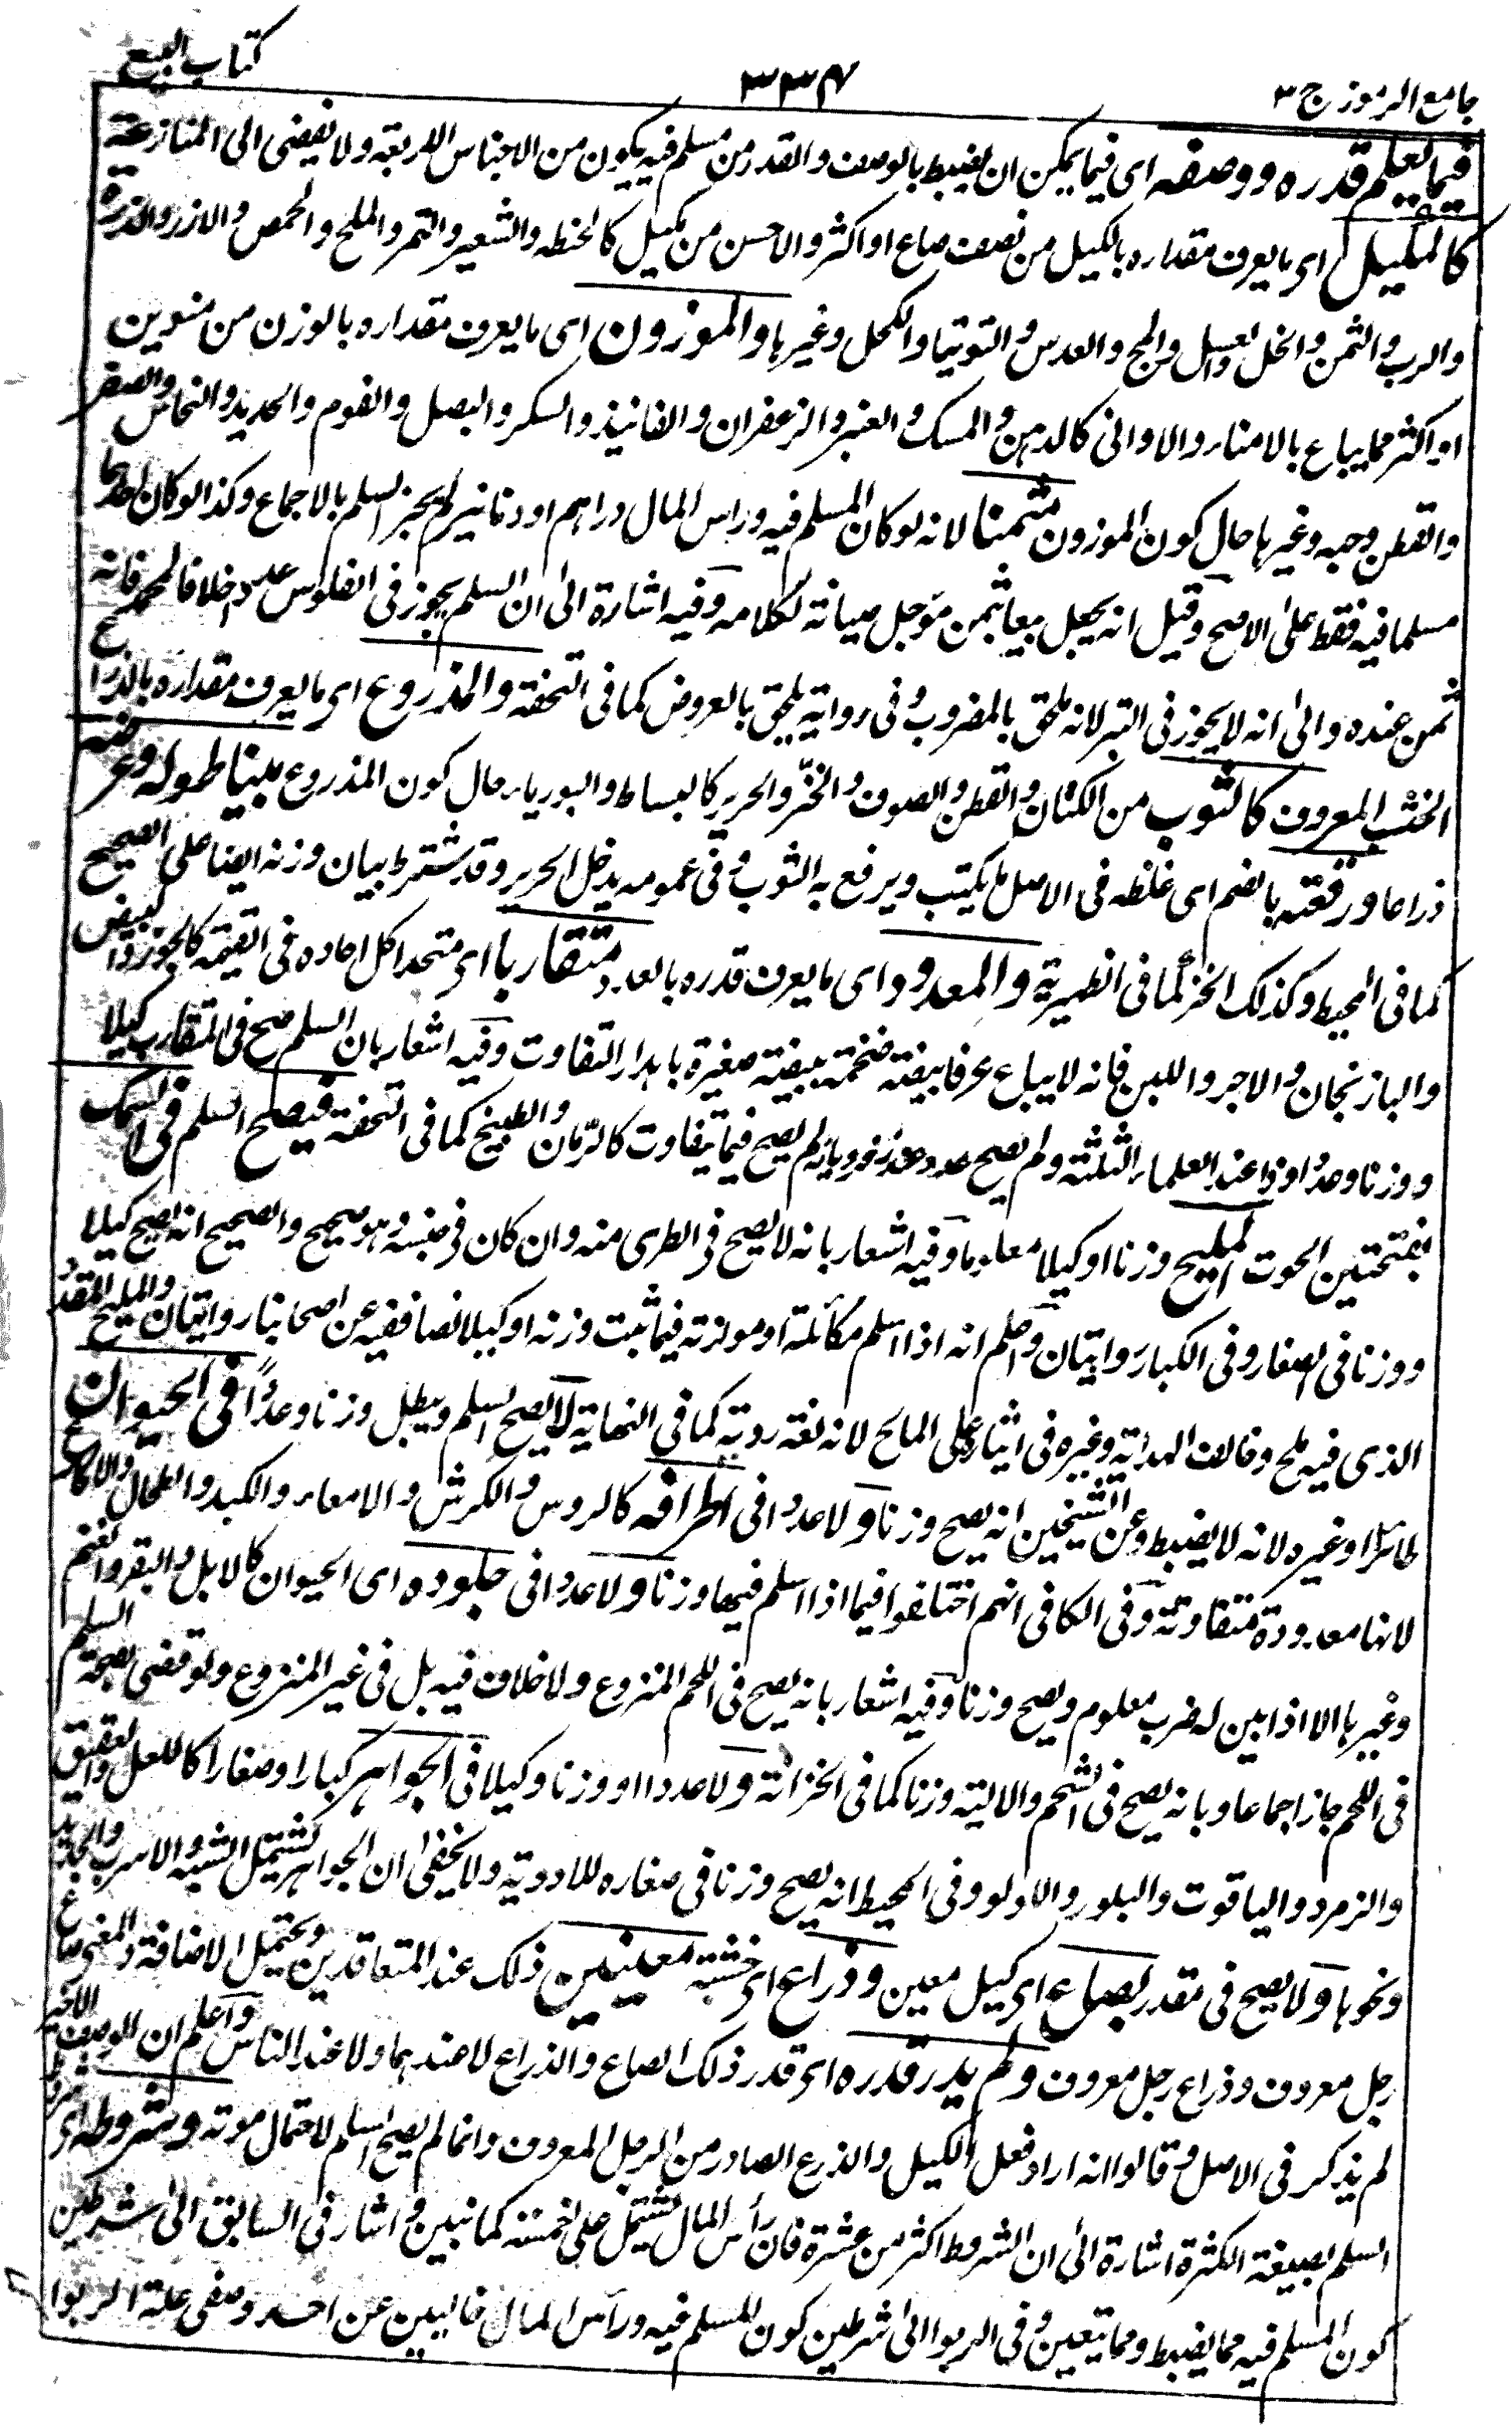 جامع الرموز ج ٣
٣٣٤
كتاب البيع
فيما يعلم قدره ووصفه اى فيما يمكن ان يضبط بالوصف والقدر من مسلم فيه يكون من الاجناس الاربعة ولا يفضى الى المنازعة
كالمكيل اى ما يعرف مقداره بالكيل من نصف صاع او اكثر والاحسن من مكيل كالحنطة والشعير والتمر والملح والحمص والارز والذرة
والرب والثمن والخل والعسل والمج والعدس والتوتيا والكحل وغيرها والموزون اى ما يعرف مقداره بالوزن من منوين
او اكثر مما يباع بالامناء والاوانى كالدهن والمسك والعنبر والزعفران والفانيذ والسكر والبصل والفوم والحديد والنحاس والصفر
والقطن وحبه وغيرها حال كون الموزون مثمنا لانه لو كان المسلم فيه وراس المال دراهم او دنانير لم يجز السلم بالاجماع وكذا لو كان احدهما
مسلما فيه فقط على الاصح وقيل انه يجعل بيعا بثمن مؤجل صيانة لكلامه وفيه اشارة الى ان السلم يجوز فى الفلوس عددا خلافا لمحمد فانه
ثمن عنده والى انه لا يجوز فى التبر لانه ملحق بالمضروب وفى رواية يلحق بالعروض كما فى التحفة والمذروع اى ما يعرف مقداره بالذراع
الخشب المعروف كالثوب من الكتان والقطن والصوف والخز والحرير كالبساط والبورياء حال كون المذروع مبينا طوله وعرضه
ذراعا ورقعته بالضم اى غلظه فى الاصل ما يكتب ويرفع به الثوب وفى عمومه يدخل الحرير وقد يشترط بيان وزنه ايضا على الصحيح
كما فى المحيط وكذلك الخز كما فى الظهيرية والمعدود اى ما يعرف قدره بالعدد متقاربا اى متحدا كل احاده فى القيمة كالجوز والبيض
والباذنجان والاجر واللبن فانه لا يباع عرفا بيضة ضخمة ببيضة صغيرة باهدار التفاوت وفيه اشعار بان السلم صح فى المتقارب كيلا
ووزنا وعدا وذا عند العلماء الثلثة ولم يصح عدد عند زفر وبانه لم يصح فيما يتفاوت كالرمان والبطيخ كما فى التحفة فيصلح السلم فى السمك
بفتحتين الحوت المليح وزنا او كيلا معلوما وفيه اشعار بانه لا يصح فى الطرى منه وان كان فى حينه وهو صحيح والصحيح انه يصح كيلا
ووزنا فى الصغار وفى الكبار روايتان واعلم انه اذا اسلم مكائلة او موازنة فيما ثبت وزنه او كيله نصا ففيه عن اصحابنا روايتان والمليح المقدد
الذى فيه ملح وخالف الهداية وغيره فى ايثاره على المالح لانه لغة ردية كما فى النهاية لا يصح السلم ويبطل وزنا وعدا فى الحيوان
طائرا وغيره لانه لا يضبط وعن الشيخين انه يصح وزنا ولا عددا فى اطرافه كالروس والكرش والامعاء والكبد والطحال والاكارع
لانها معدودة متفاوتة وفى الكافى انهم اختلفوا فيما اذا اسلم فيها وزنا ولا عددا فى جلوده اى الحيوان كالابل والبقر والغنم
وغيرها الا اذا بين له ضرب معلوم ويصح وزنا وفيه اشعار بانه يصح فى اللحم المنزوع ولا خلاف فيه بل فى غير المنزوع ولو قضى بصحة السلم
فى اللحم جاز اجماعا وبانه يصح فى الشحم والالية وزنا كما فى الخزانة ولا عددا او وزنا وكيلا فى الجواهر كبارا وصغارا كاللعل والعقيق
والزمرد والياقوت والبلور واللؤلؤ وفى المحيط انه يصح وزنا فى صغاره للادوية ولا يخفى ان الجواهر تشتمل الشبه والاسرب والحديد
ونحوها ولا يصح فى مقدر بصاع اى كيل معين وذراع اى خشبة معينين ذلك عند المتعاقدين ويحتمل الاضافة والمعنى صاع
رجل معروف وذراع رجل معروف ولم يدر قدره اى قدر ذلك الصاع والذراع لا عندهما ولا عند الناس واعلم ان الوصف الاخير
لم يذكر فى الاصل وقالوا انه اراد فعل الكيل والذرع الصادر من الرجل المعروف وانما لم يصح السلم لاحتمال موته وشروطه اى شروط
السلم بصيغة الكثرة اشارة الى ان الشروط اكثر من عشرة فان رأس المال يشتمل على خمسة كما نبين واشار فى السابق الى شرطين
كون المسلم فيه مما يضبط ومما يتعين وفى الربوا الى شرطين كون المسلم فيه ورأس المال خاليين عن احد وصفى علة الربوا